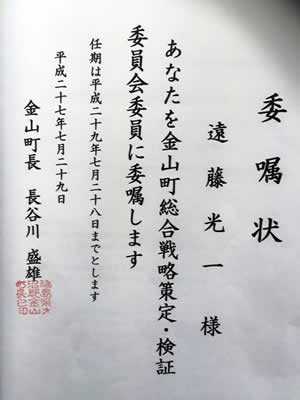 委嘱状
遠藤光一 様
あなたを金山町総合戦略策定・検証
委員会委員に委嘱します
任期は平成二十九年七月二十八日までとします
平成二十七年七月二十九日
金山町長 長谷川 盛雄